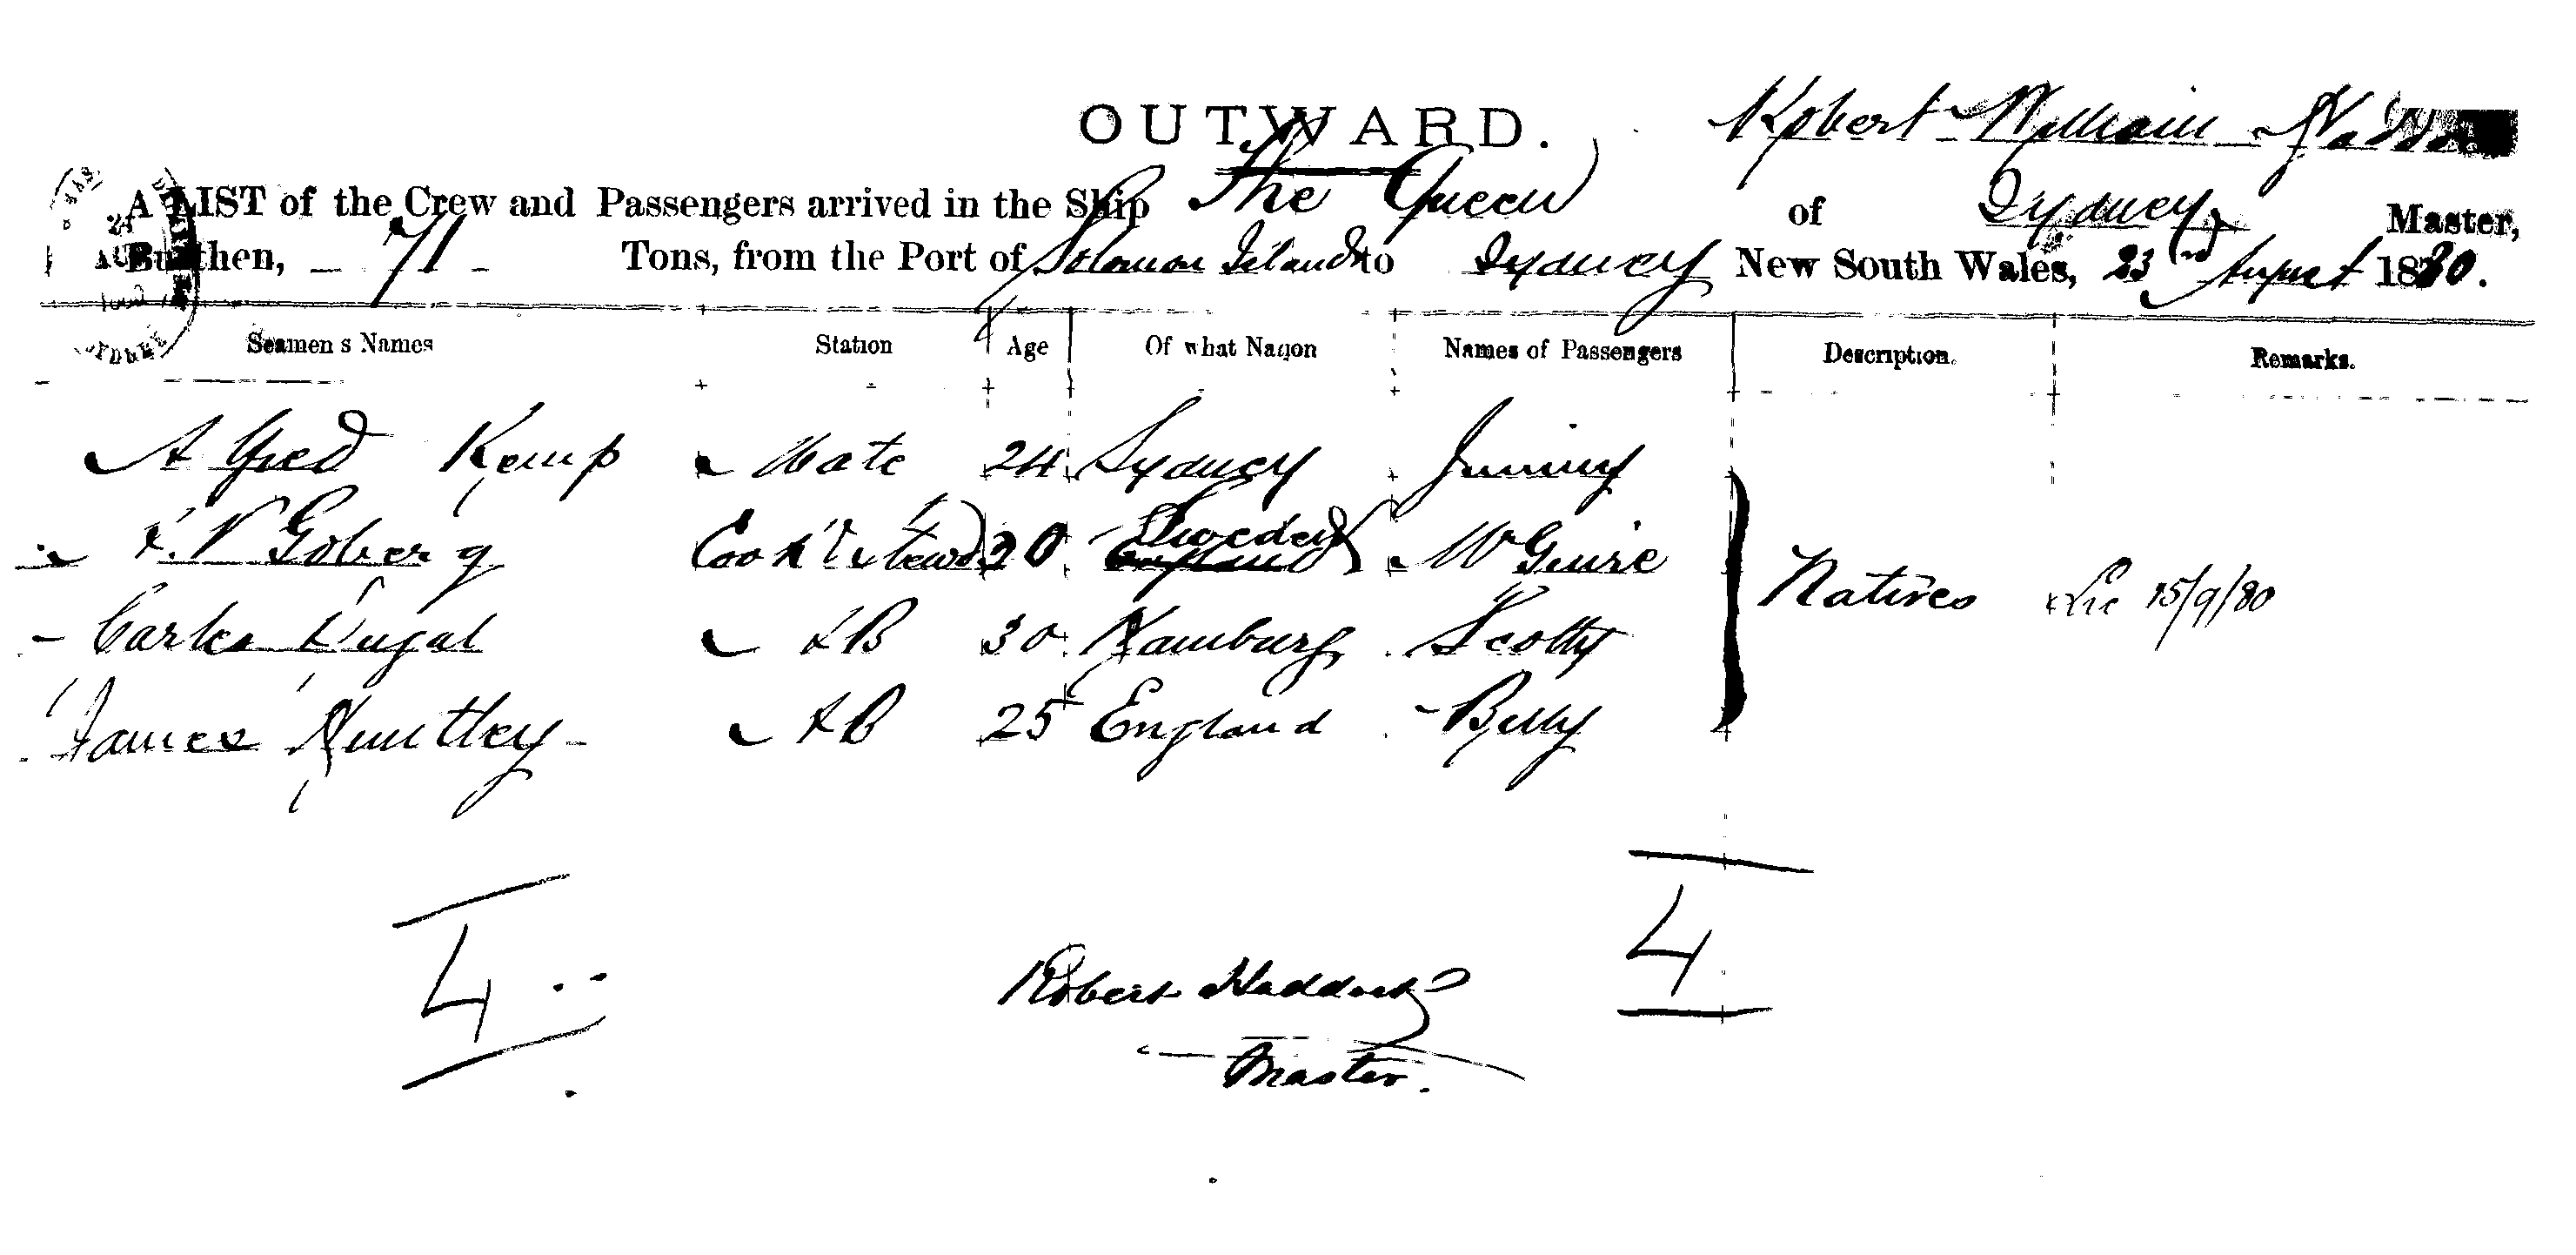 OUTWARD.
Robert William
A LIST of the Crew and Passengers arrived in the Ship The Queen of Sydney Master,
Burthen, 71 Tons, from the Port of Solomon Islands to Sydney New South Wales, 23rd August 1880.
Seamen s Names Station Age Of what Nation Names of Passengers Description. Remarks.
Alfred Kemp Mate 24 Sydney Jimmy
Goberg Cook & Stewd 20 Sweden McGuire
AB 30 Hamburg Scotty Natives 15/9/80
James Huntley AB 25 England Billy
4 4
Robert Haddock
Master.